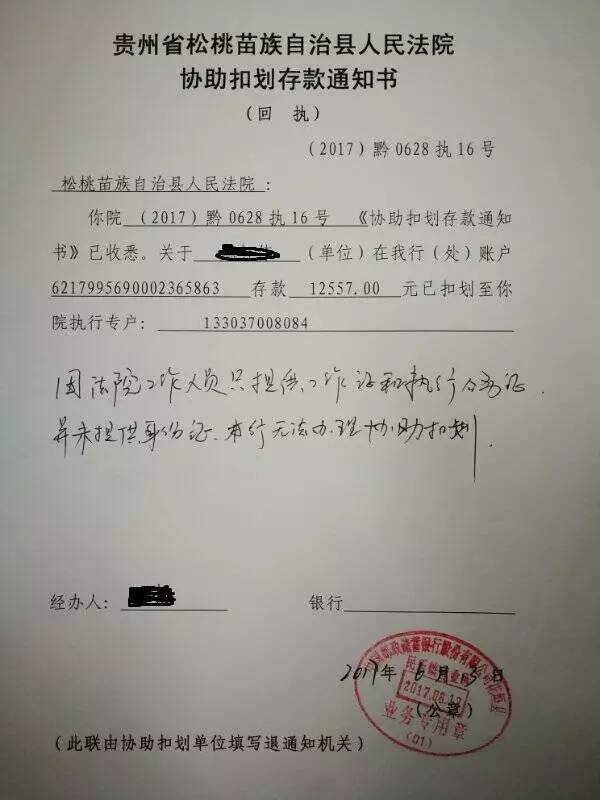 贵州省松桃苗族自治县人民法院
协助扣划存款通知书
（回 执）
（2017）黔0628执16号
松桃苗族自治县人民法院：
你院（2017）黔0628执16号《协助扣划存款通知
书》已收悉。关于（单位）在我行（处）账户
6217995690002365863存款12557.00元已扣划至你
院执行专户：133037008084
因法院工作人员只提供工作证和执行公务证，
并未提供身份证，本行无法办理协助扣划
经办人：
银行
2017年6月13日
（公章）
邮政储蓄银行股份有限公司
营业
2017.06.13
业务专用章
（01）
（此联由协助扣划单位填写退通知机关）